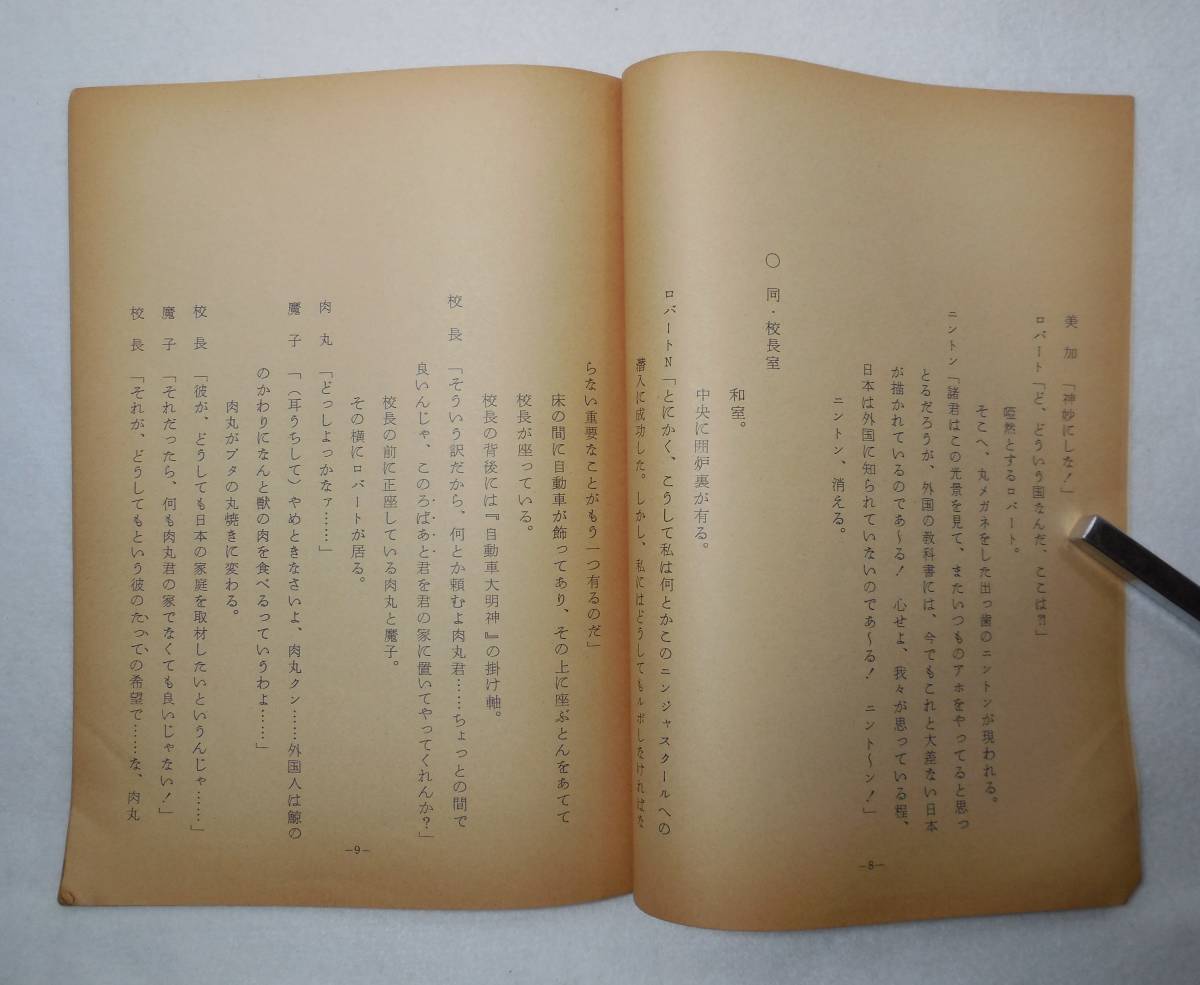 美加「神妙にしな！」
ロバート「ど、どういう国なんだ、ここは⁈」
啞然とするロバート。
そこへ、丸メガネをした出っ歯のニントンが現われる。
ニントン「諸君はこの光景を見て、またいつものアホをやってると思っ
とるだろうが、外国の教科書には、今でもこれと大差ない日本
が描かれているのであ〜る！　心せよ、我々が思っている程、
日本は外国に知られていないのであ〜る！　ニント〜ン！」
ニントン、消える。
〇　同・校長室
和室。
中央に囲炉裏が有る。
ロバートN「とにかく、こうして私は何とかこのニンジャスクールへの
潜入に成功した。しかし、私にはどうしてもルポしなければな
－8－
らない重要なことがもう一つ有るのだ」
床の間に自動車が飾ってあり、その上に座ぶとんをあてて
校長が座っている。
校長の背後には『自動車大明神』の掛け軸。
校長「そういう訳だから、何とか頼むよ肉丸君……ちょっとの間で
良いんじゃ、このろばあと君を君の家に置いてやってくれんか？」
校長の前に正座している肉丸と魔子。
その横にロバートが居る。
肉丸「どっしよっかなァ……」
魔子「（耳うちして）やめときなさいよ、肉丸クン……外国人は鯨の
のかわりになんと獣の肉を食べるっていうわよ……」
肉丸がブタの丸焼きに変わる。
校長「彼が、どうしても日本の家庭を取材したいというんじゃ……」
魔子「それだったら、何も肉丸君の家でなくても良いじゃない！」
校長「それが、どうしてもという彼のたっての希望で……な、肉丸
－9－